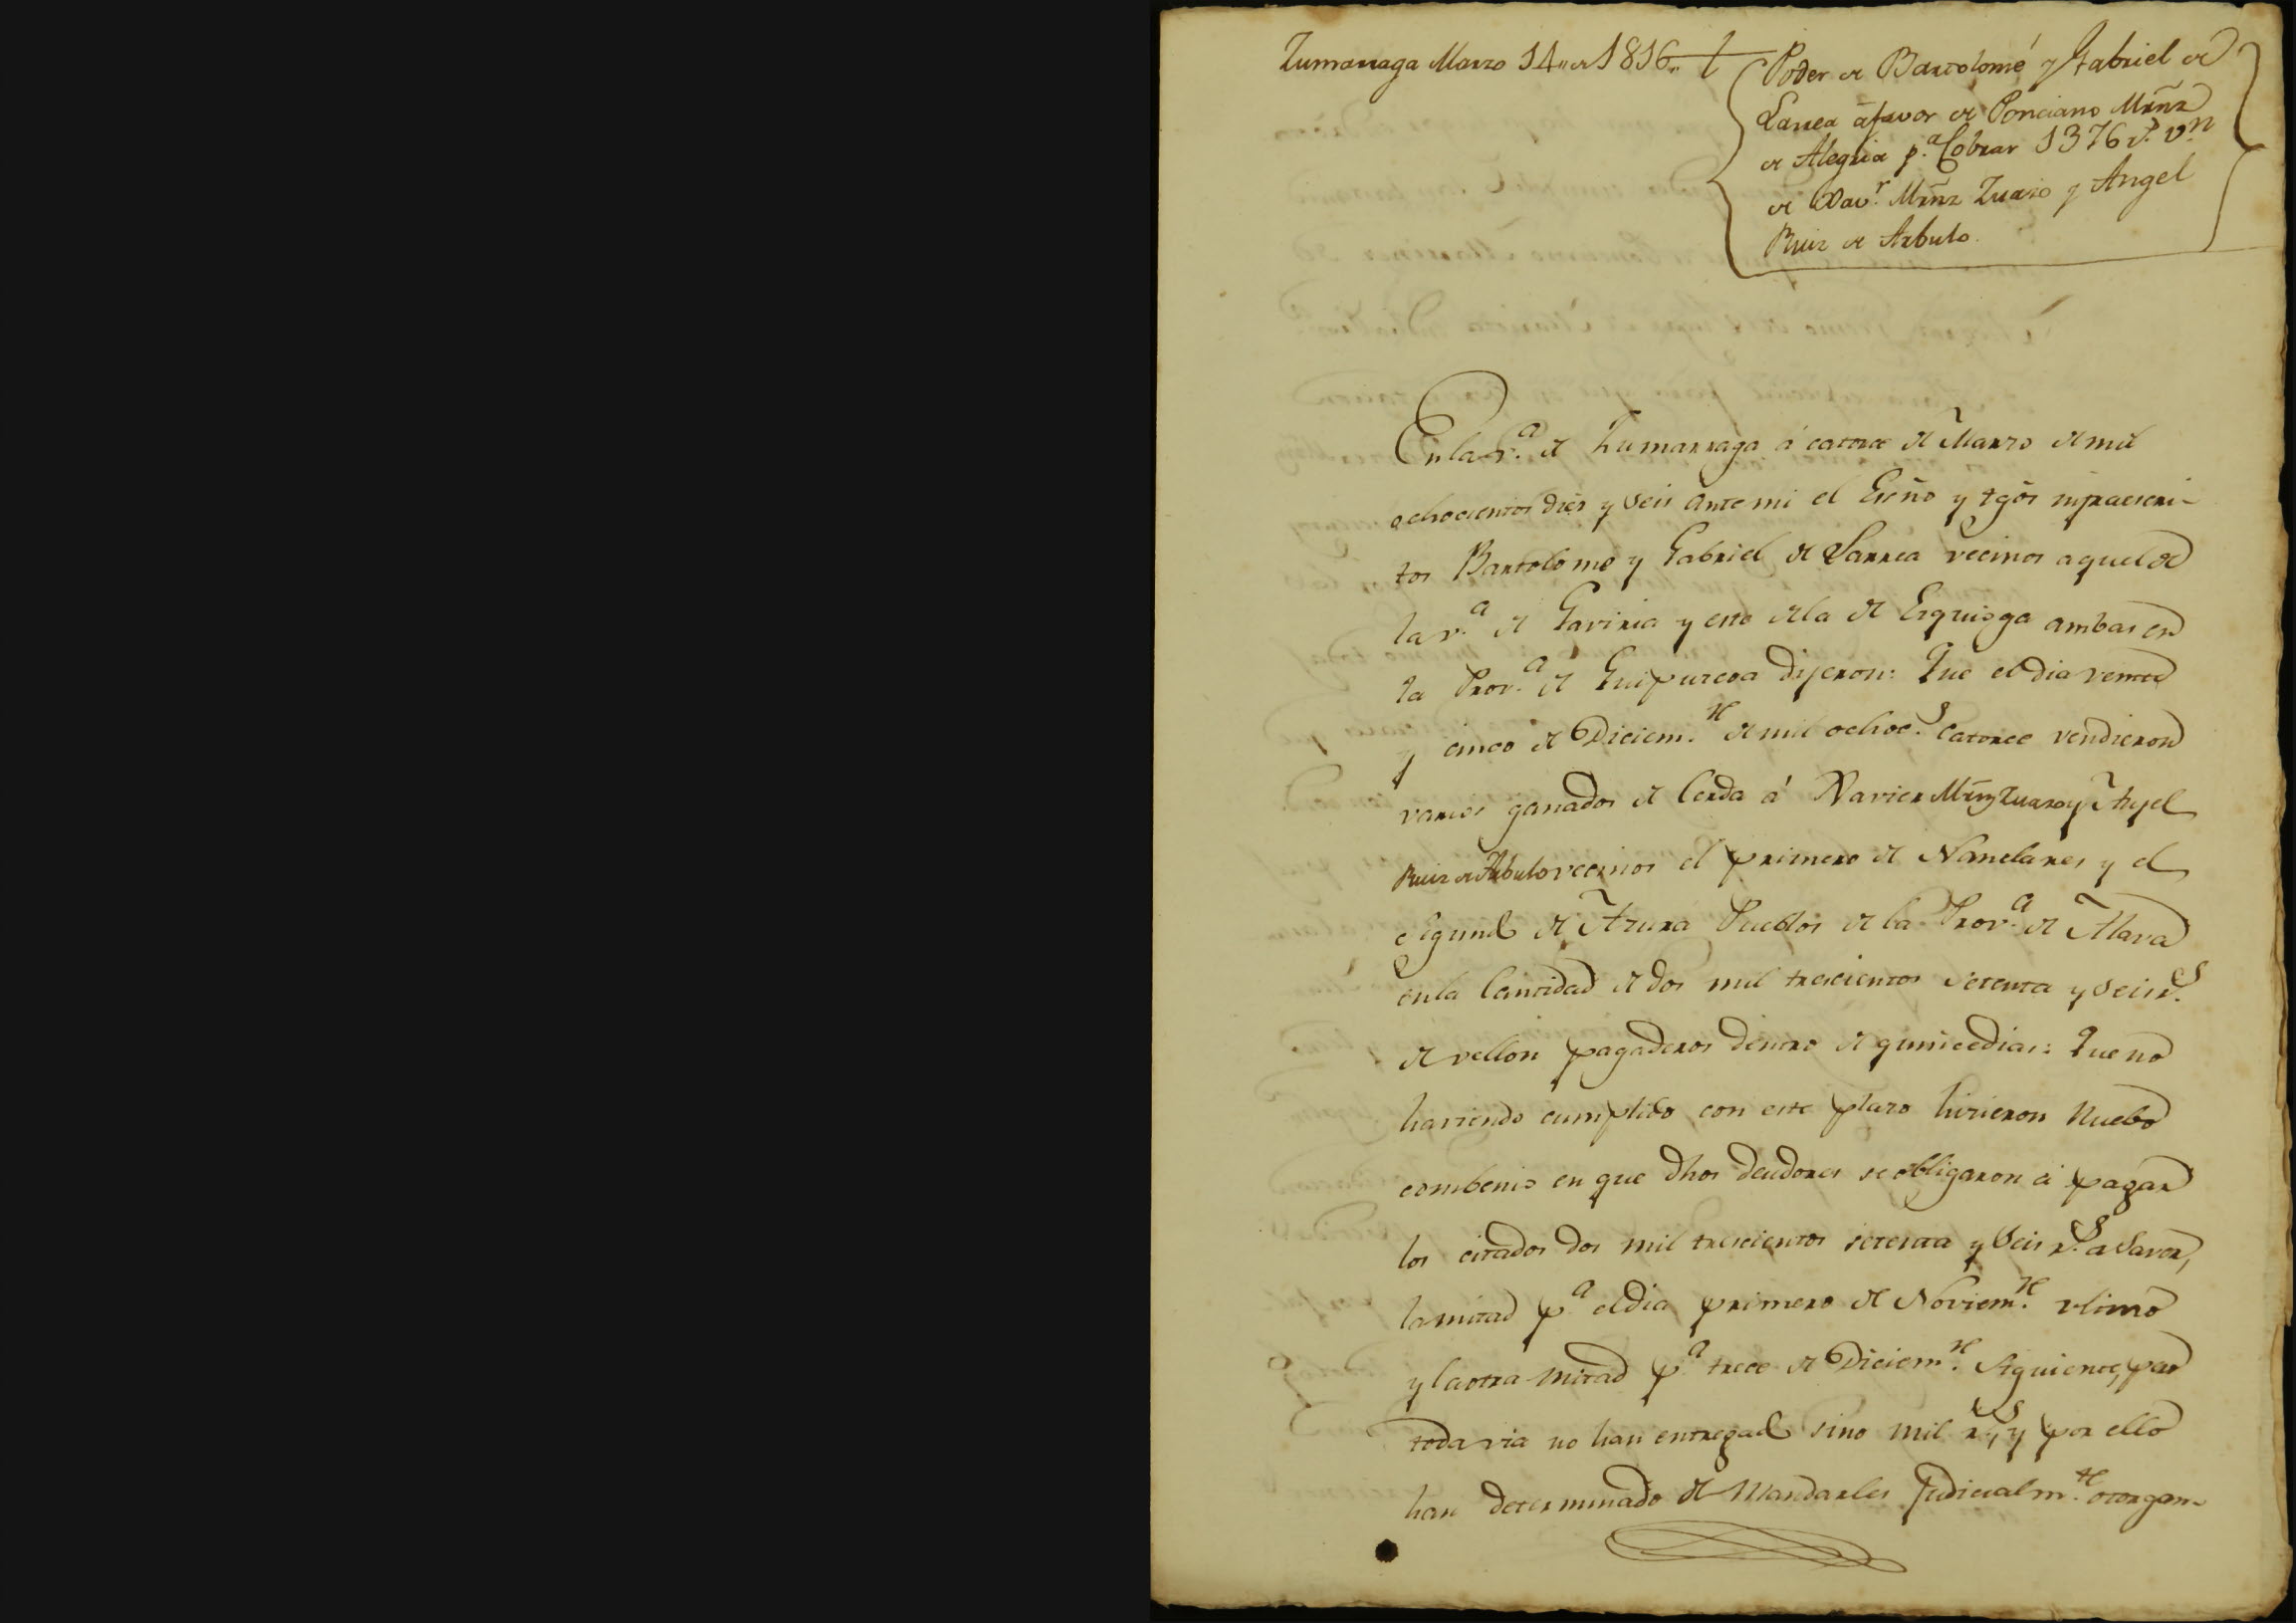 Zumarraga Marzo 14,, de 1816,,
Poder de Bartolomé y Gabriel de
Larrea á favor de Ponciano Mrñz
de Alegria p.ª Cobrar 1376 r.s v.n
de Xav.r Mrñz Zuazo y Angel
Ruiz de Arbulo.
En la v.ª de Zumarraga á catorce de Marzo de mil
ochocientos dies y seis ante mi el Esñô y tgôs infraescri-
tos Bartolome y Gabriel de Larrea vecinos aquel de
la v.ª de Gaviria y este de la de Ezquioga ambas en
la Prov.ª de Guipuzcoa dijeron: Que el dia veinte
y cinco de Diciem.re de mil ochoc.s catorce vendieron
varios ganados de Cerda á Xavier Mrñz Zuazo y Angel
Ruiz de Arbulo vecinos el primero de Nanclares y el
segundo de Azura Pueblos de la Prov.ª de Alava
en la Cantidad de dos mil trescientos setenta y seis r.s
de vellon pagaderos dentro de quince dias: Que no
haviendo cumplido con este plazo hicieron nuebo
combenio en que dhos deudores se obligaron á pagar
los citados dos mil trescientos setenta y seis r.s a Saver,
la mitad p.ª el dia primero de Noviem.re ultimo
y la otra mitad p.ª trece de Diciem.re siguiente, pero
todavia no han entregado sino mil r.s, y por ello
han determinado de Mandarles judicialm.te otorgan-